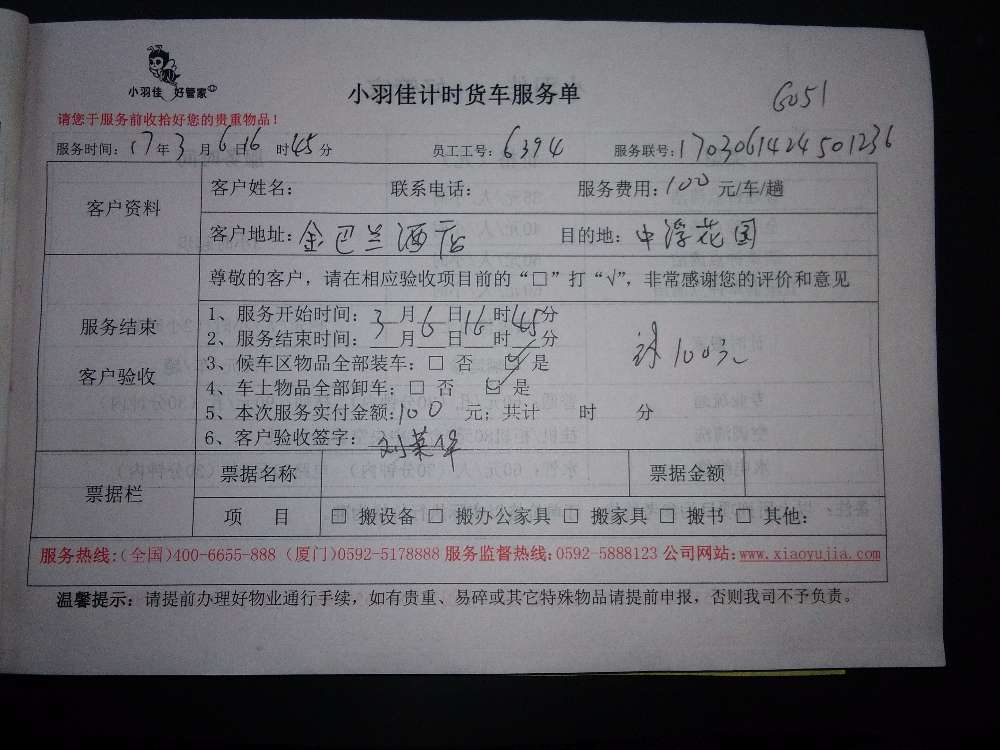 小羽佳 好管家
小羽佳计时货车服务单
G051
请您于服务前收拾好您的贵重物品！
服务时间：17年3月6日16时45分 员工工号：6394 服务联号：1703061424501236
客户资料
客户姓名： 联系电话： 服务费用：100元/车/趟
客户地址：金巴兰酒店 目的地：中浮花园
尊敬的客户，请在相应验收项目前的“□”打“√”，非常感谢您的评价和意见
服务结束
客户验收
1、服务开始时间：3月6日16时45分
2、服务结束时间：___月___日___时___分
3、候车区物品全部装车：□ 否 ☑ 是
4、车上物品全部卸车：□ 否 ☑ 是
5、本次服务实付金额：100 元；共计 时 分
6、客户验收签字：刘菜华
100元
票据栏
票据名称 票据金额
项 目 □ 搬设备 □ 搬办公家具 □ 搬家具 □ 搬书 □ 其他：
服务热线：（全国）400-6655-888（厦门）0592-5178888 服务监督热线：0592-5888123 公司网站：www.xiaoyujia.com
温馨提示：请提前办理好物业通行手续，如有贵重、易碎或其它特殊物品请提前申报，否则我司不予负责。